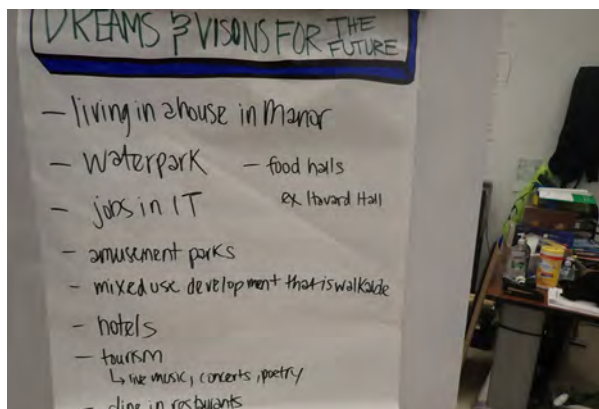 DREAMS & VISONS FOR THE FUTURE
- living in a house in Manor
- Waterpark - food halls
ex Havard Hall
- jobs in IT
- amusement parks
- mixed use development that is walkable
- hotels
- tourism
↳ live music, concerts, poetry
- dine in resturants